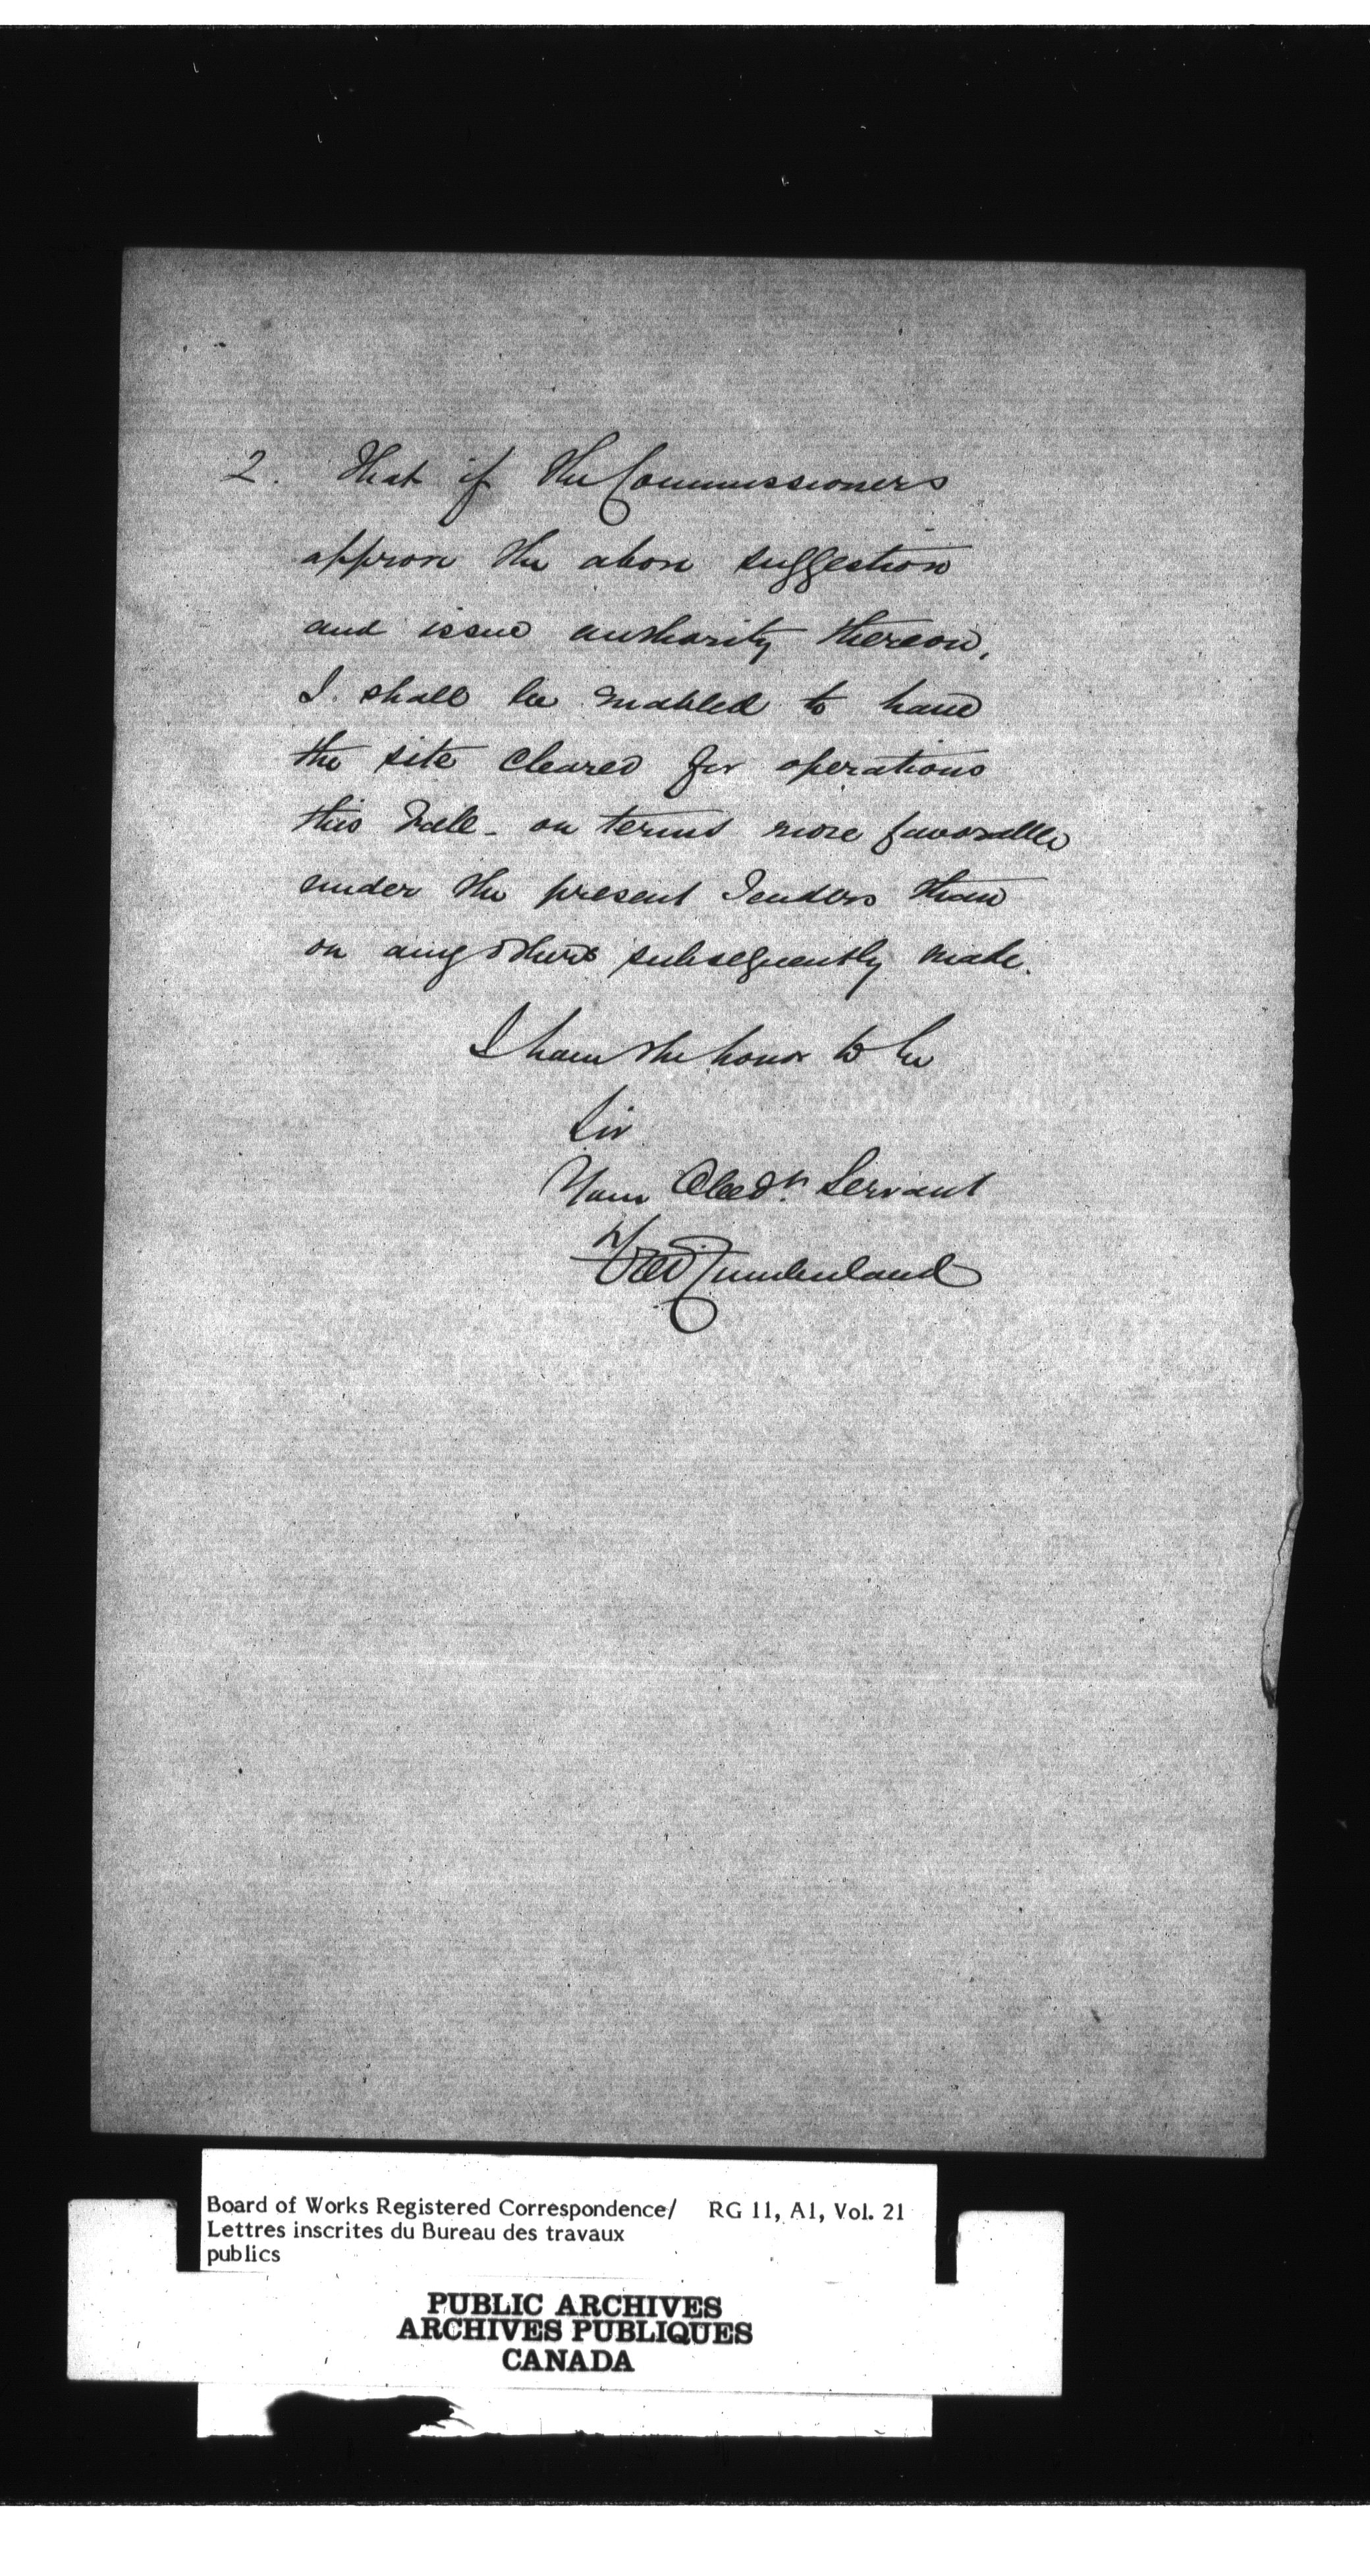 2. That if the Commissioners
approve the above suggestion
and issue authority thereon,
I shall be enabled to have
the site cleared for operations
this Fall - on terms more favorable
under the present Tenders than
on any others subsequently made.
I have the honor to be
Sir
Your Obedt. Servant
Fred Cumberland
Board of Works Registered Correspondence/ RG 11, A1, Vol. 21
Lettres inscrites du Bureau des travaux
publics
PUBLIC ARCHIVES
ARCHIVES PUBLIQUES
CANADA